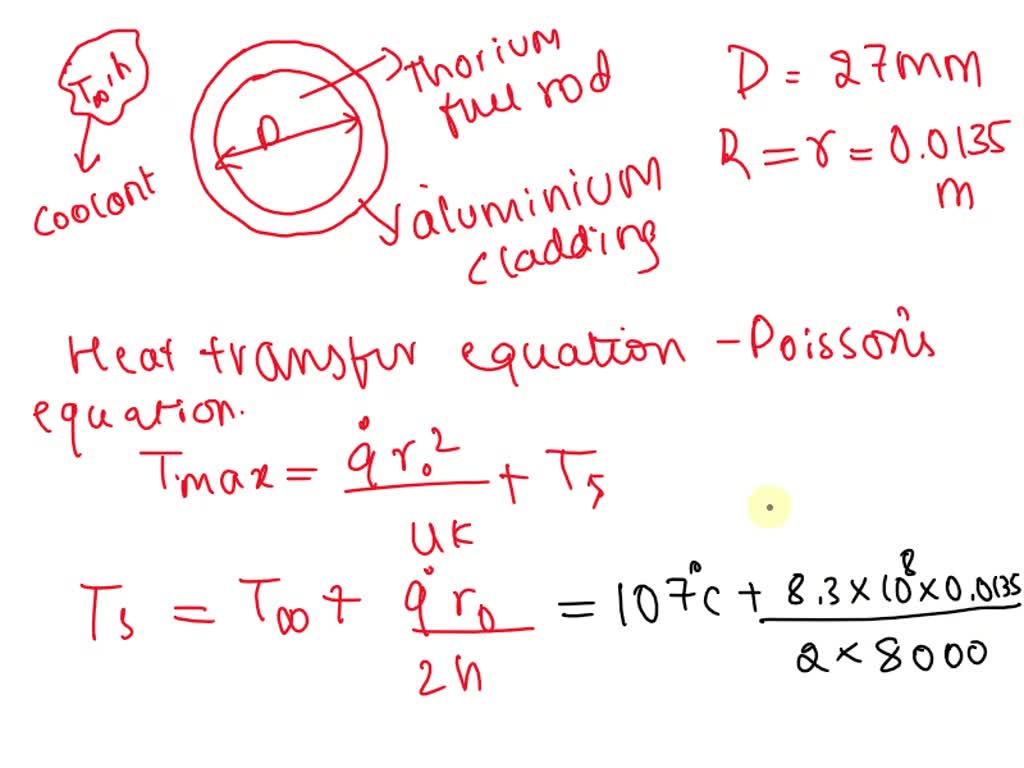 T∞, h
coolant
D
Thorium
fuel rod
aluminium
cladding
D = 27mm
R = r = 0.0135
m
Heat transfer equation - Poisson's
equation.
Tmax = q̇ r₀² / 4K + Ts
Ts = T∞ + q̇ r₀ / 2h = 107°C + 8.3 × 10⁸ × 0.0135 / 2 × 8000